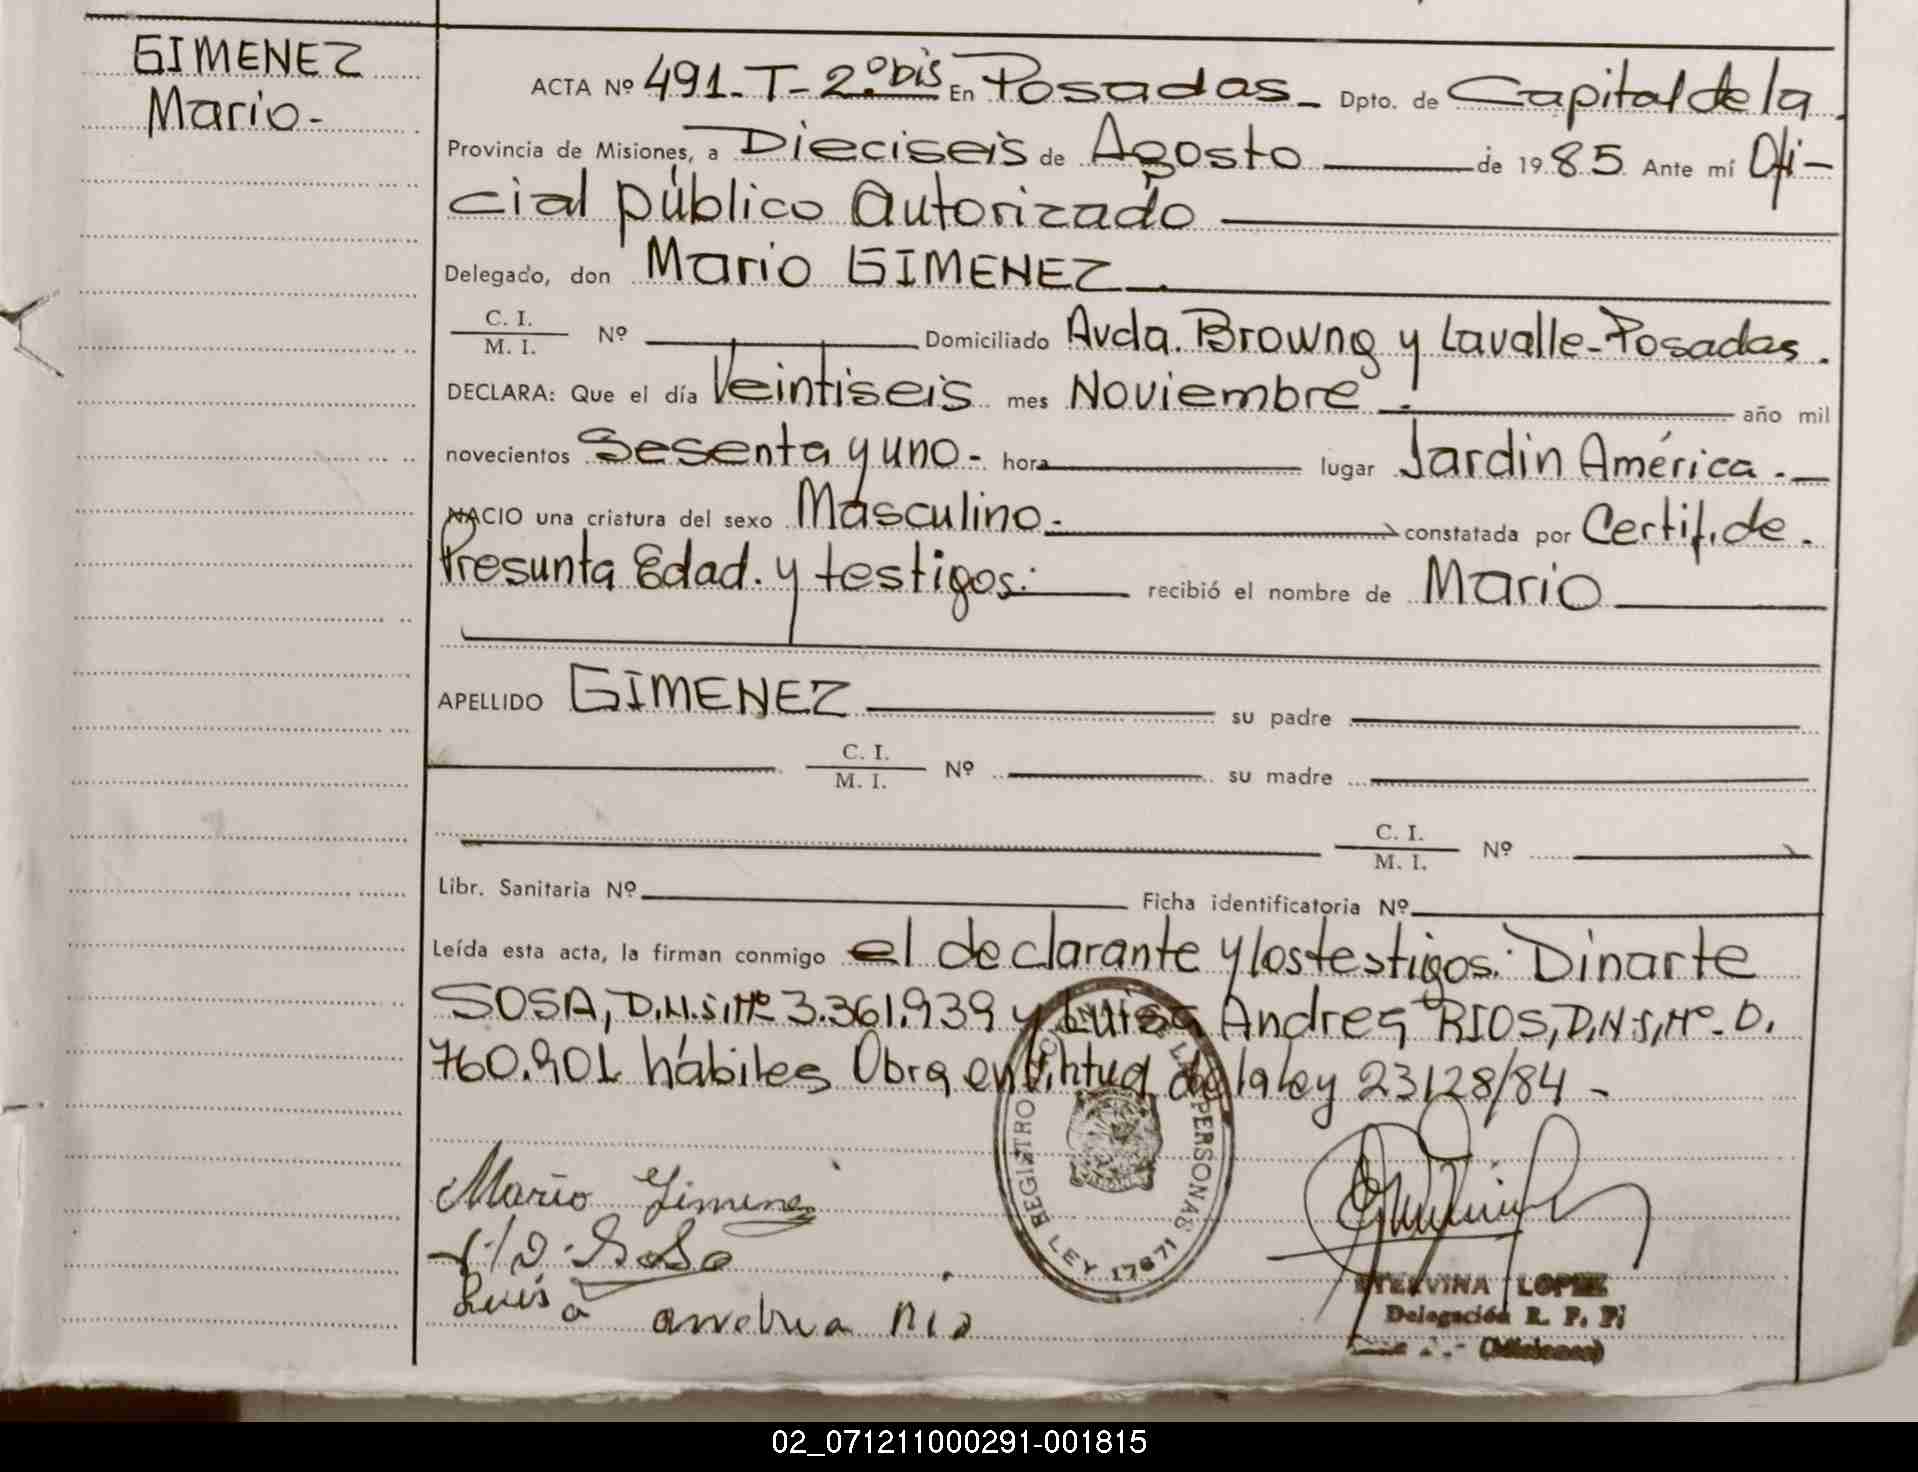 GIMENEZ
Mario-
ACTA Nº 491-T-2º bis En Posadas- Dpto. de Capital de la
Provincia de Misiones, a Dieciseis de Agosto de 1985 Ante mí Ofi-
cial público Autorizado
Delegado, don Mario GIMENEZ.
C. I.
M. I. Nº Domiciliado Avda. Browng y Lavalle-Posadas.
DECLARA: Que el día Veintiseis mes Noviembre. año mil
novecientos sesenta y uno- hora lugar Jardin América.-
NACIO una criatura del sexo Masculino.- constatada por Certif. de.
Presunta Edad. y testigos.- recibió el nombre de Mario
APELLIDO GIMENEZ su padre
C. I.
M. I. Nº su madre
C. I.
M. I. Nº
Libr. Sanitaria Nº Ficha identificatoria Nº
Leída esta acta, la firman conmigo el declarante y los testigos: Dinarte
SOSA, D.N.I, Nº 3.361.939 y Luisa Andres RIOS, D.N.I, Nº-0.
760.901 hábiles Obra en Virtud de la ley 23128/84 -
Mario Gimenez
D. Sosa
Luis a
REGISTRO PERSONAS LEY 17671
ETELVINA LOPEZ
Delegación R. P. P.
(Misiones)
02_071211000291-001815